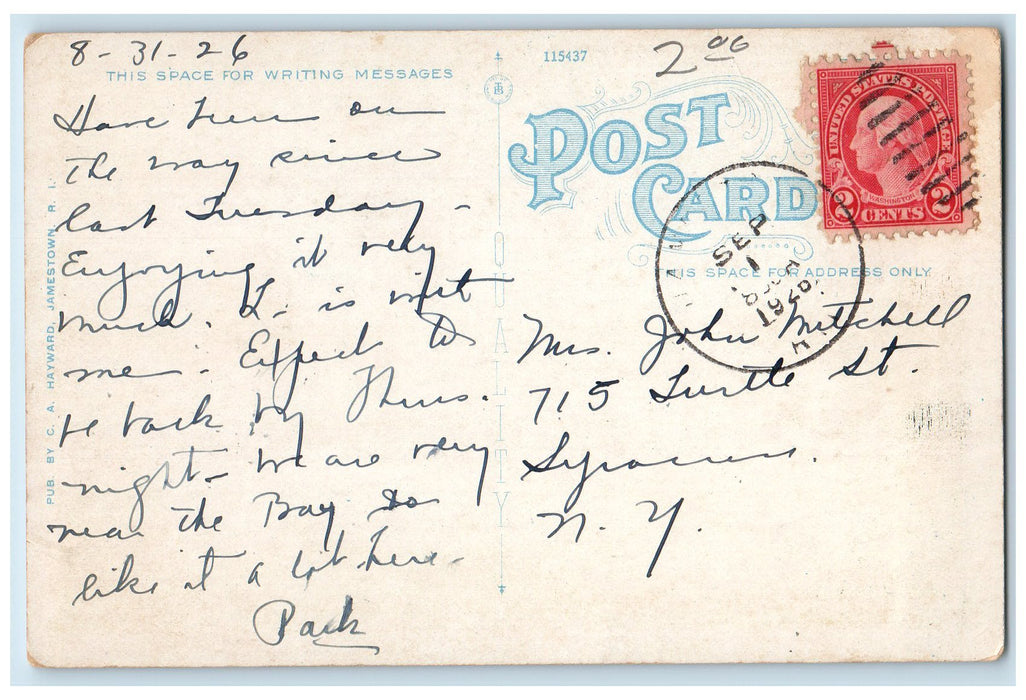 8-31-26
THIS SPACE FOR WRITING MESSAGES
Have been on
the way since
last Tuesday -
Enjoying it very
much. L. is with
me. Expect to
be back by Thurs.
night - We are very
near the Bay so
like it a lot here.
Park
PUB. BY C. A. HAYWARD, JAMESTOWN, R. I.
QUALITY
115437
2.00
POST CARD
THIS SPACE FOR ADDRESS ONLY
UNITED STATES POSTAGE
WASHINGTON
2 CENTS 2
SEP
1
1926
Mrs. John Mitchell
715 Turtle St.
Syracuse.
N. Y.